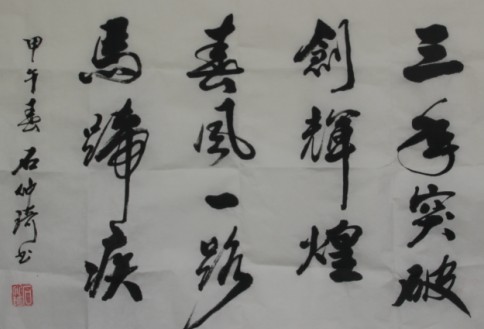 三年突破
創輝煌
春風一路
馬蹄疾
甲午春石仙琦书